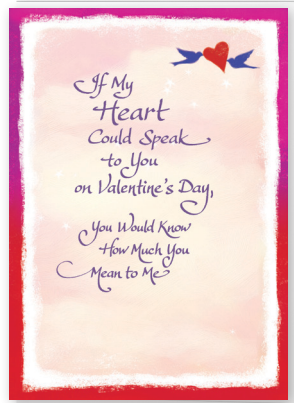 If My
Heart
Could Speak
to You
on Valentine's Day,
you Would Know
How Much You
Mean to Me